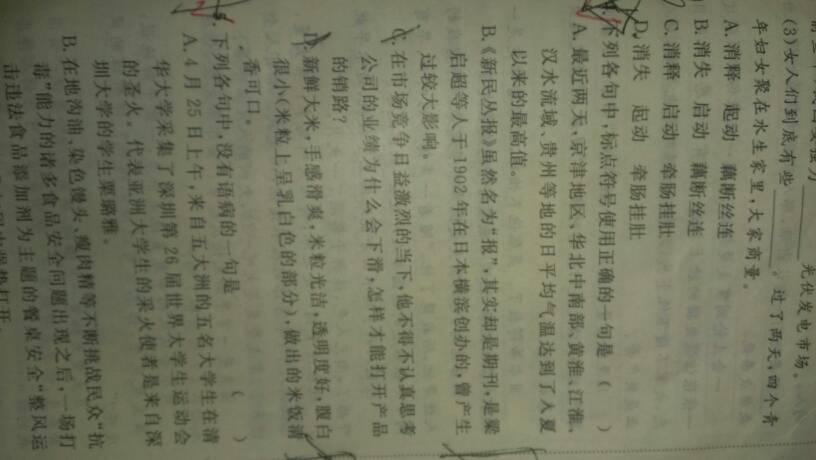 光伏发电市场。
(3)女人们到底有些______。过了两天,四个青
年妇女聚在水生家里,大家商量。
A. 消释 起动 藕断丝连
B. 消失 启动 藕断丝连
C. 消释 启动 牵肠挂肚
D. 消失 起动 牵肠挂肚
下列各句中,标点符号使用正确的一句是 ( )
A. 最近两天,京津地区、华北中南部、黄淮、江淮、
汉水流域、贵州等地的日平均气温达到了入夏
以来的最高值。
B.《新民丛报》虽然名为“报”,其实却是期刊,是梁
启超等人于1902年在日本横滨创办的,曾产生
过较大影响。
C. 在市场竞争日益激烈的当下,他不得不认真思考
公司的业绩为什么会下滑,怎样才能打开产品
的销路?
D. 新鲜大米,手感滑爽,米粒光洁,透明度好,腹白
很小(米粒上呈乳白色的部分),做出的米饭清
香可口。
5. 下列各句中,没有语病的一句是 ( )
A. 4月25日上午,来自五大洲的五名大学生在清
华大学采集了深圳第26届世界大学生运动会
的圣火。代表亚洲大学生的采火使者是来自深
圳大学的学生栗璐雅。
B. 在地沟油、染色馒头、瘦肉精等不断挑战民众“抗
毒”能力的诸多食品安全问题出现之后,一场打
击违法食品添加剂为主题的餐桌安全“整风运